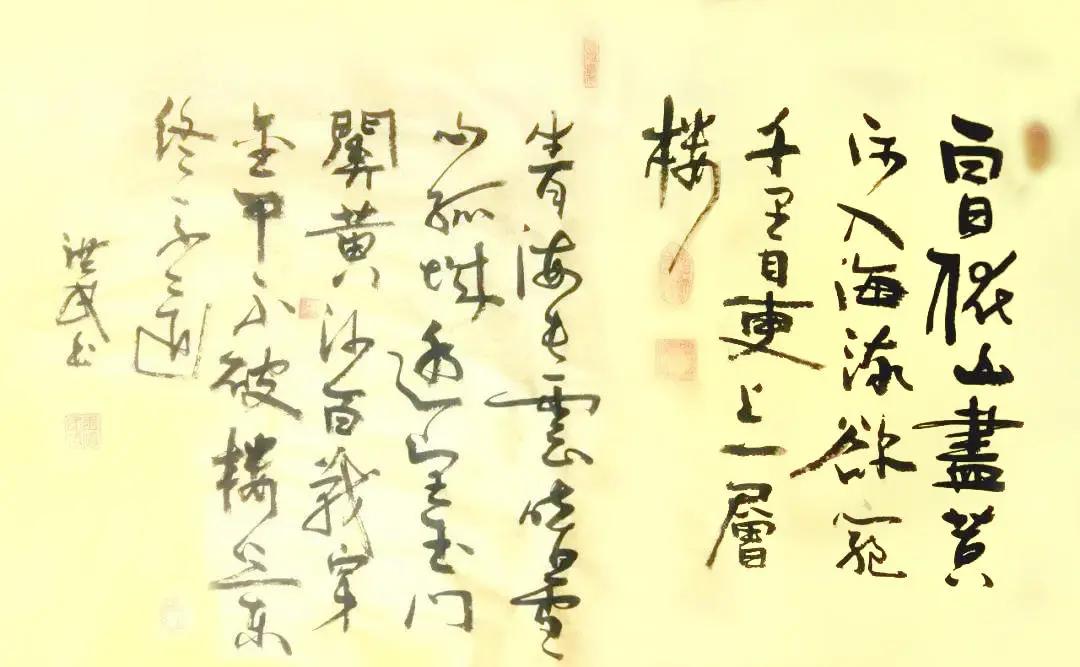 白日依山盡黄
河入海流欲窮
千里目更上一層
楼
青海长雲暗雪
山孤城遥望玉門
關黄沙百戰穿
金甲不破楼蘭
终不還
洪武书